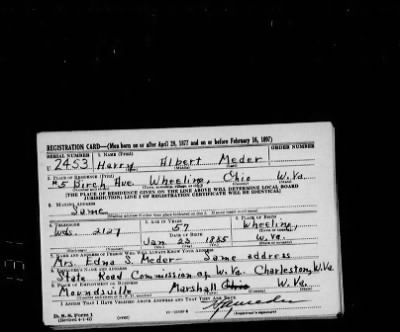 REGISTRATION CARD—(Men born on or after April 28, 1877 and on or before February 16, 1897)
SERIAL NUMBER 1. NAME (Print) ORDER NUMBER
U 2453 Harry Albert Meder
2. PLACE OF RESIDENCE (Print)
#5 Birch Ave. Wheeling, Ohio W.Va.
(THE PLACE OF RESIDENCE GIVEN ON THE LINE ABOVE WILL DETERMINE LOCAL BOARD
JURISDICTION; LINE 2 OF REGISTRATION CERTIFICATE WILL BE IDENTICAL)
3. MAILING ADDRESS
Same
4. TELEPHONE 5. AGE IN YEARS 6. PLACE OF BIRTH
57 Wheeling,
Wds. 2127 DATE OF BIRTH
Jan 23 1885 W.Va.
7. NAME AND ADDRESS OF PERSON WHO WILL ALWAYS KNOW YOUR ADDRESS
Mrs. Edna S. Meder Same address
8. EMPLOYER'S NAME AND ADDRESS
State Road Commission of W.Va. Charleston, W.Va.
9. PLACE OF EMPLOYMENT OR BUSINESS
Moundsville Marshall Ohio W.Va.
I AFFIRM THAT I HAVE VERIFIED ABOVE ANSWERS AND THAT THEY ARE TRUE.
D. S. S. Form 1